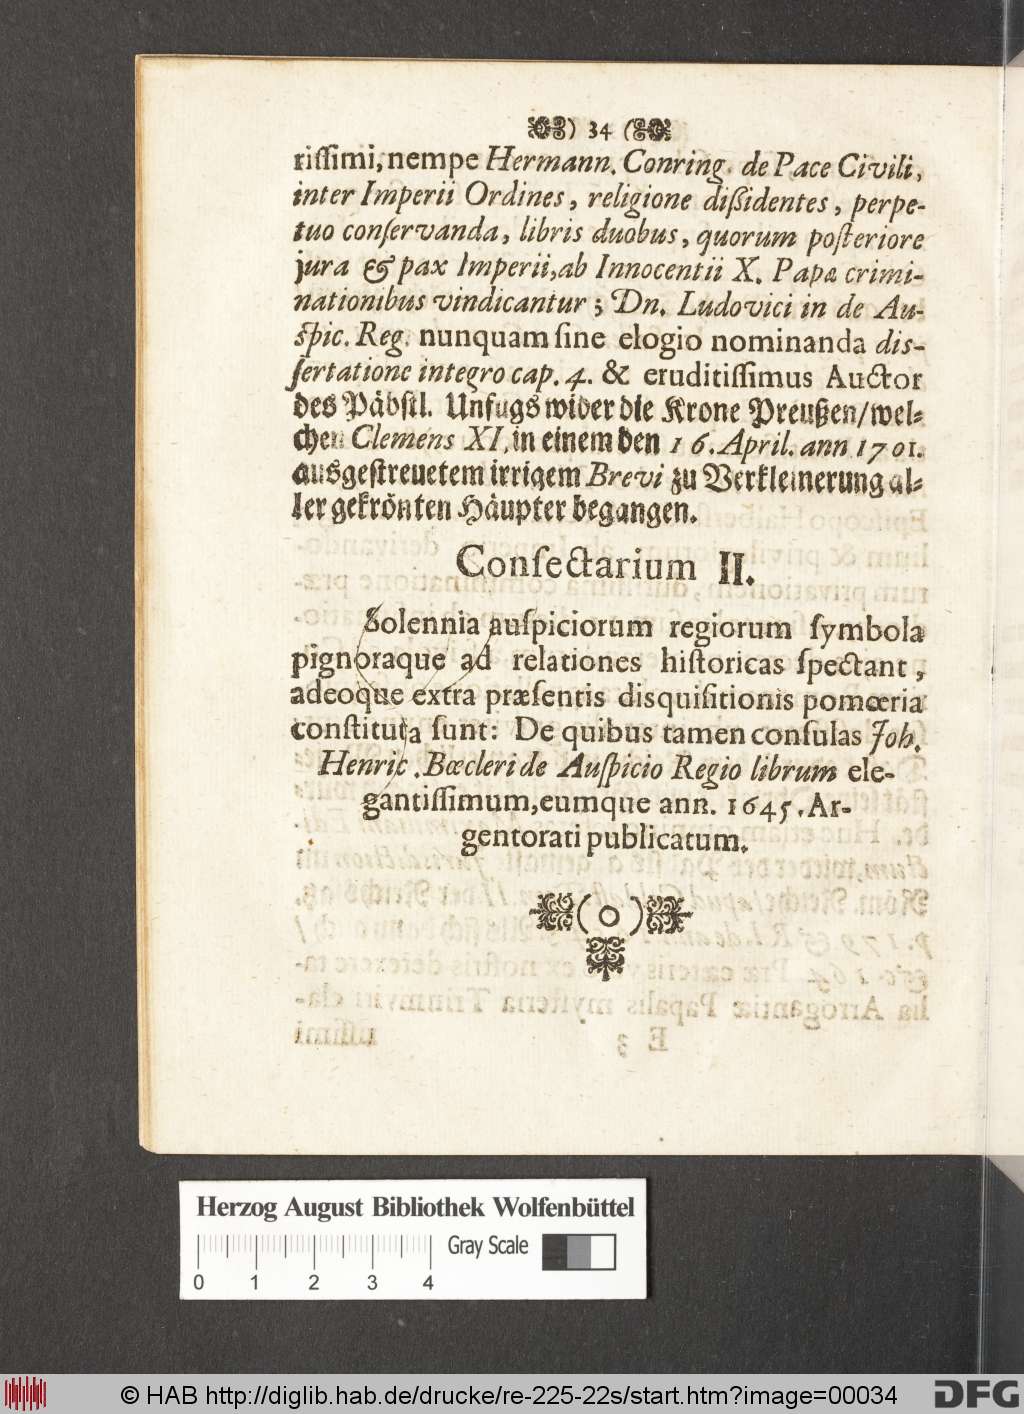 ) 34 (
rissimi, nempe Hermann. Conring. de Pace Civili,
inter Imperii Ordines, religione dißidentes, perpe-
tuo conſervanda, libris duobus, quorum poſteriore
jura & pax Imperii, ab Innocentii X. Papæ crimi-
nationibus vindicantur; Dn. Ludovici in de Au-
ſpic. Reg. nunquam ſine elogio nominanda diſ-
ſertatione integro cap. 4. & eruditiſſimus Auctor
des Päbſtl. Unfugs wider die Krone Preußen/wel-
chen Clemens XI. in einem den 16. April. ann 1701.
ausgeſtreuetem irrigem Brevi zu Verkleinerung al-
ler gekrönten Häupter begangen.
Conſectarium II.
Solennia auſpiciorum regiorum ſymbola
pignoraque ad relationes hiſtoricas ſpectant,
adeoque extra præſentis disquiſitionis pomœria
conſtituta ſunt: De quibus tamen conſulas Joh.
Henric. Bœcleri de Auſpicio Regio librum ele-
gantiſſimum, eumque ann. 1645. Ar-
gentorati publicatum.
( o )
Herzog August Bibliothek Wolfenbüttel
Gray Scale
0 1 2 3 4
© HAB http://diglib.hab.de/drucke/re-225-22s/start.htm?image=00034
DFG